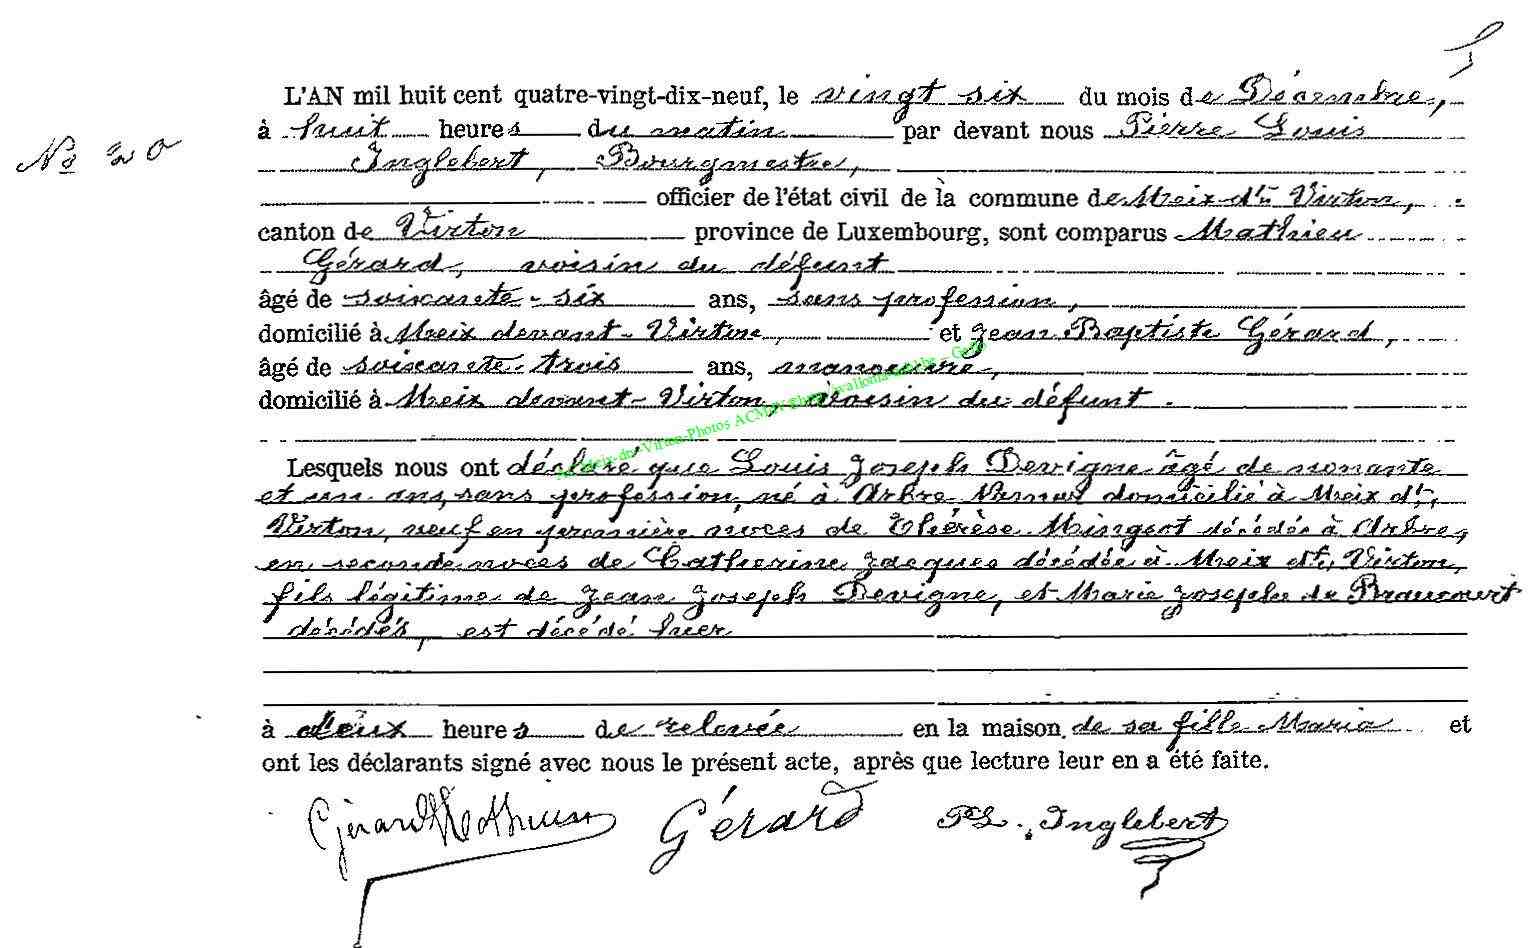 L'AN mil huit cent quatre-vingt-dix-neuf, le vingt six du mois de Décembre,
à huit heures du matin par devant nous Pierre Louis
No 20
Inglebert, Bourgmestre,
officier de l'état civil de la commune de Meix dt Virton,
canton de Virton province de Luxembourg, sont comparus Mathieu
Gérard, voisin du défunt
âgé de soixante-six ans, sans profession,
domicilié à Meix devant-Virton, et Jean Baptiste Gérard,
âgé de soixante-trois ans, manoeuvre,
domicilié à Meix devant-Virton, voisin du défunt.
Lesquels nous ont déclaré que Louis Joseph Devigne âgé de nonante
et un ans, sans profession, né à Arbre Namur domicilié à Meix dt
Virton, veuf en première noces de Thérèse Mingeot décédée à Arbre,
en seconde noces de Catherine Jacques décédée à Meix dt Virton,
fils légitime de Jean Joseph Devigne, et Marie Josephe de Braucourt
décédés, est décédé hier
à deux heures de relevée en la maison de sa fille Maria et
ont les déclarants signé avec nous le présent acte, après que lecture leur en a été faite.
Gérard Mathieu Gérard PL. Inglebert